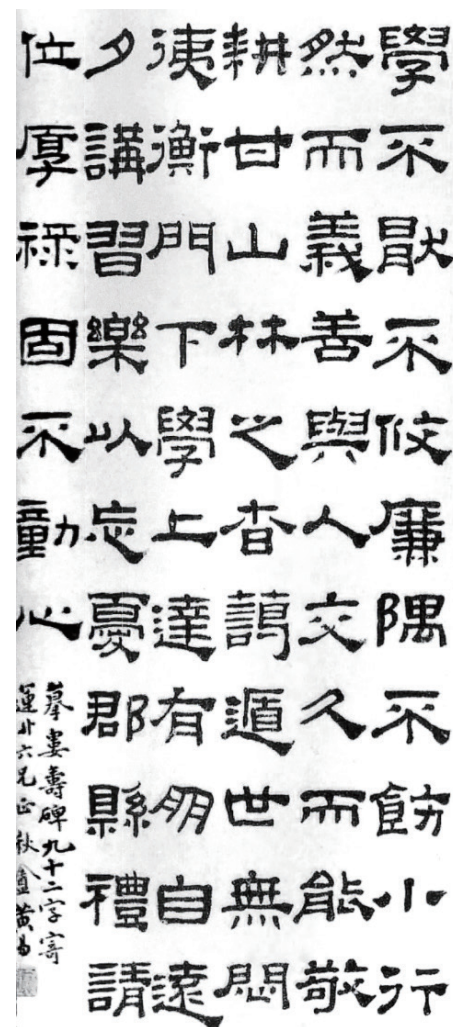 學不猒不攸廉隅不飭小行
然而義善與人交久而能敬
耕甘山林之杳藹遁世無悶
衡門下學上達有朋自遠
夕講習樂以忘憂郡縣禮請
位厚祿固不動心
摹婁壽碑九十二字寄
六兄正秋盦黃易